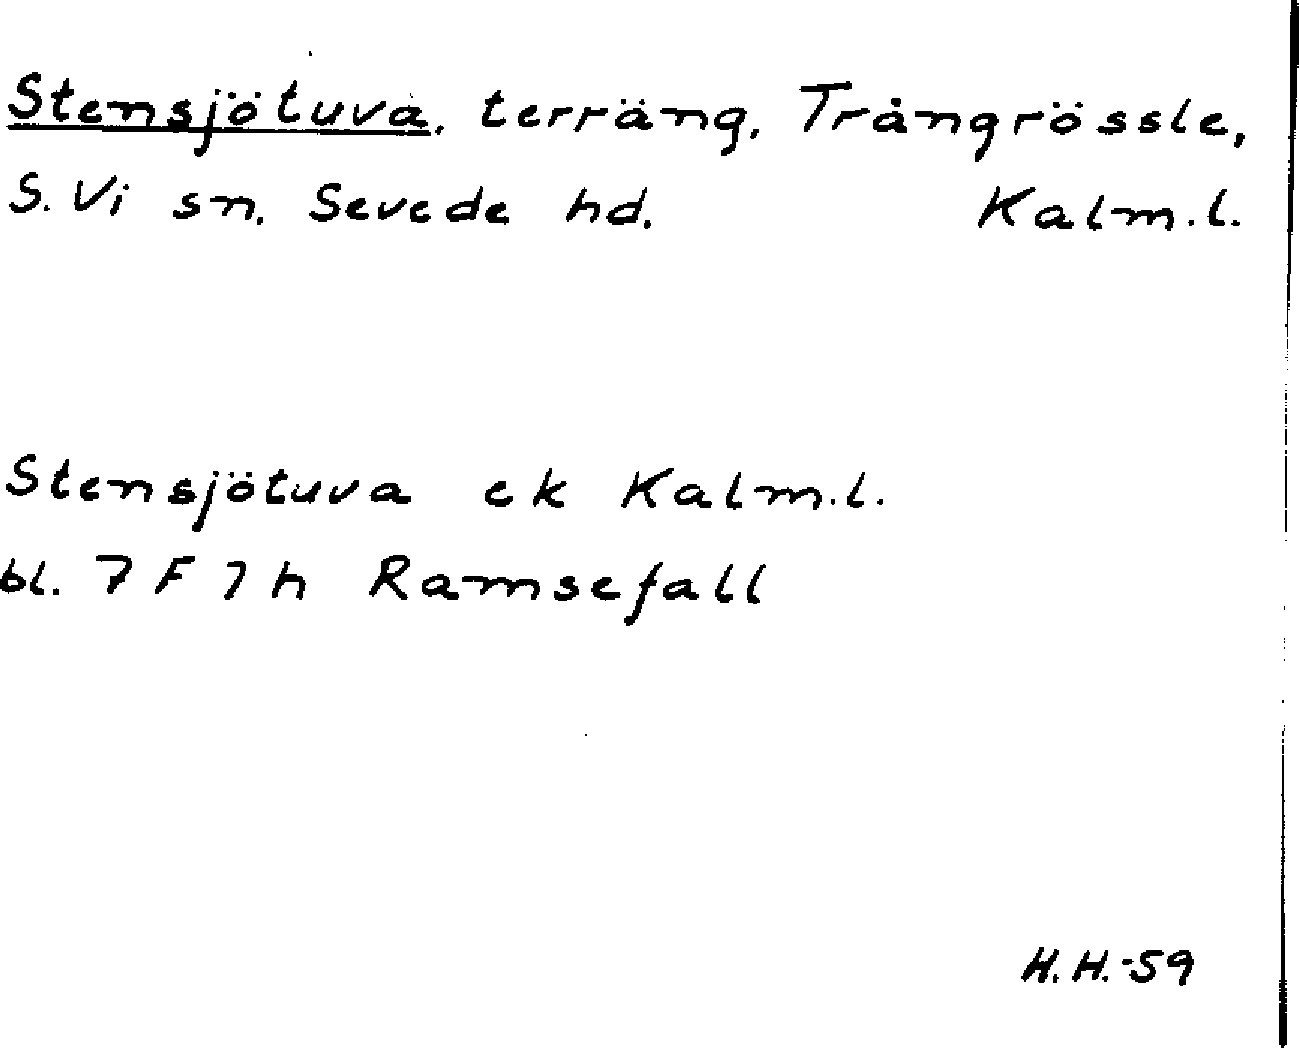 Stensjötuva, terräng, Trångrössle,
S. Vi sn, Sevede hd. Kalm.l.
Stensjötuva ek Kalm.l.
bl. 7 F 7 h Ramsefall
H.H.-59